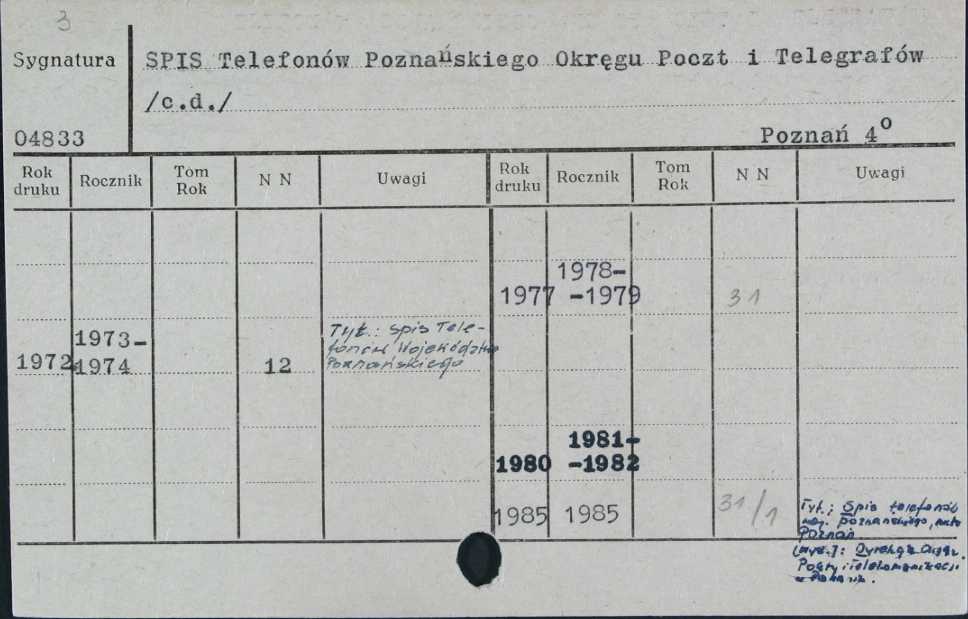 3
Sygnatura
SPIS Telefonów Poznańskiego Okręgu Poczt i Telegrafów
/c.d./
04833
Poznań 4o
Rok druku Rocznik Tom Rok N N Uwagi Rok druku Rocznik Tom Rok N N Uwagi
1978-
1977 -1979 31
1973-
1972 -1974 12
Tyt.: Spis Tele-
fonów Województwa
Poznańskiego
1981-
1980 -1982
1985 1985 31/1
Tyt.: Spis telefonów
woj. poznańskiego,
Poznań
[Wyd.]: Dyrekcja Okręg.
Poczty i Telekomunikacji
w Poznaniu.